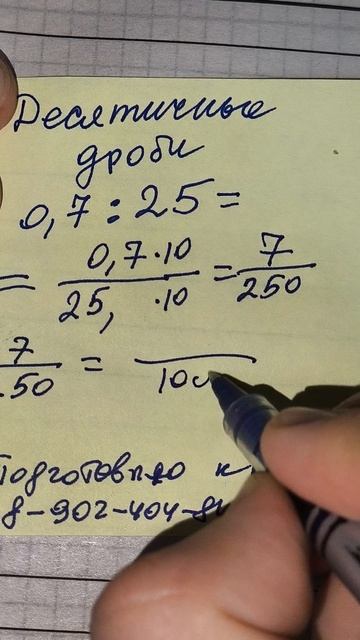 Десятичные
дроби
0,7 : 25 =
= 0,7·10 / 25, ·10 = 7 / 250
7 / 250 =  / 100
Подготовлю к
8-902-404-84